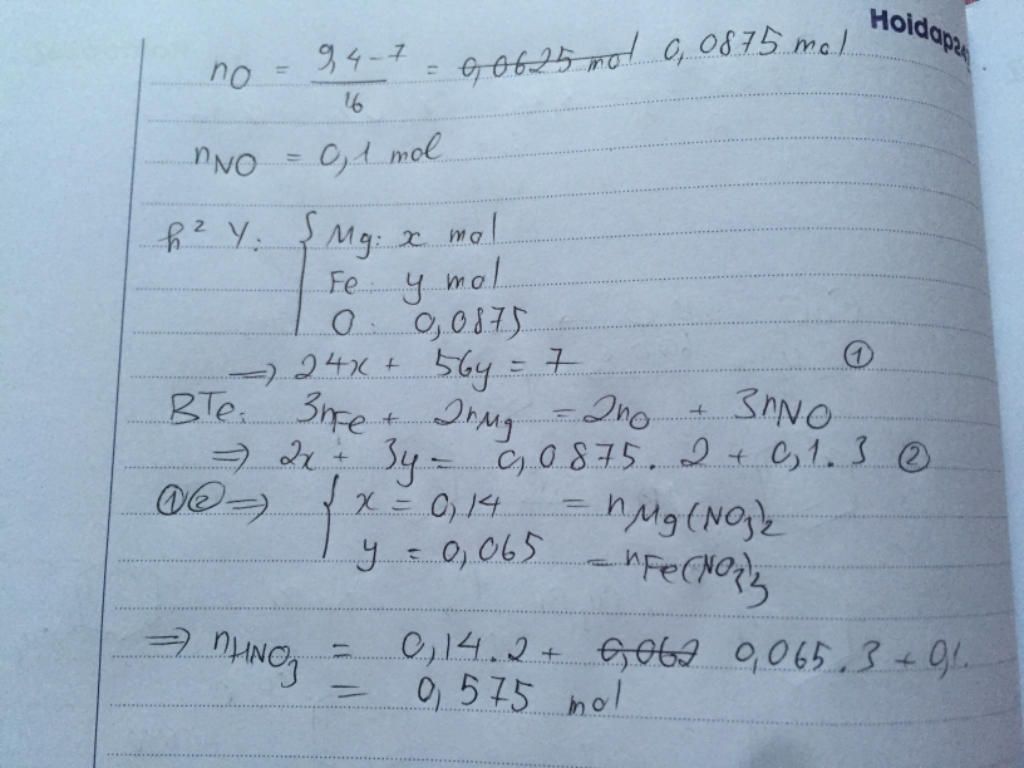 Hoidap24
nO = 9,4-7/16 = 0,0625 mol 0,0875 mol
nNO = 0,1 mol
h² Y: { Mg: x mol
Fe: y mol
O: 0,0875
=> 24x + 56y = 7 ①
BTe: 3nFe + 2nMg = 2nO + 3nNO
=> 2x + 3y = 0,0875. 2 + 0,1. 3 ②
①② => { x = 0,14 = nMg(NO3)2
y = 0,065 = nFe(NO3)3
=> nHNO3 = 0,14.2 + 0,062 0,065.3 + 0,1.
= 0,575 mol